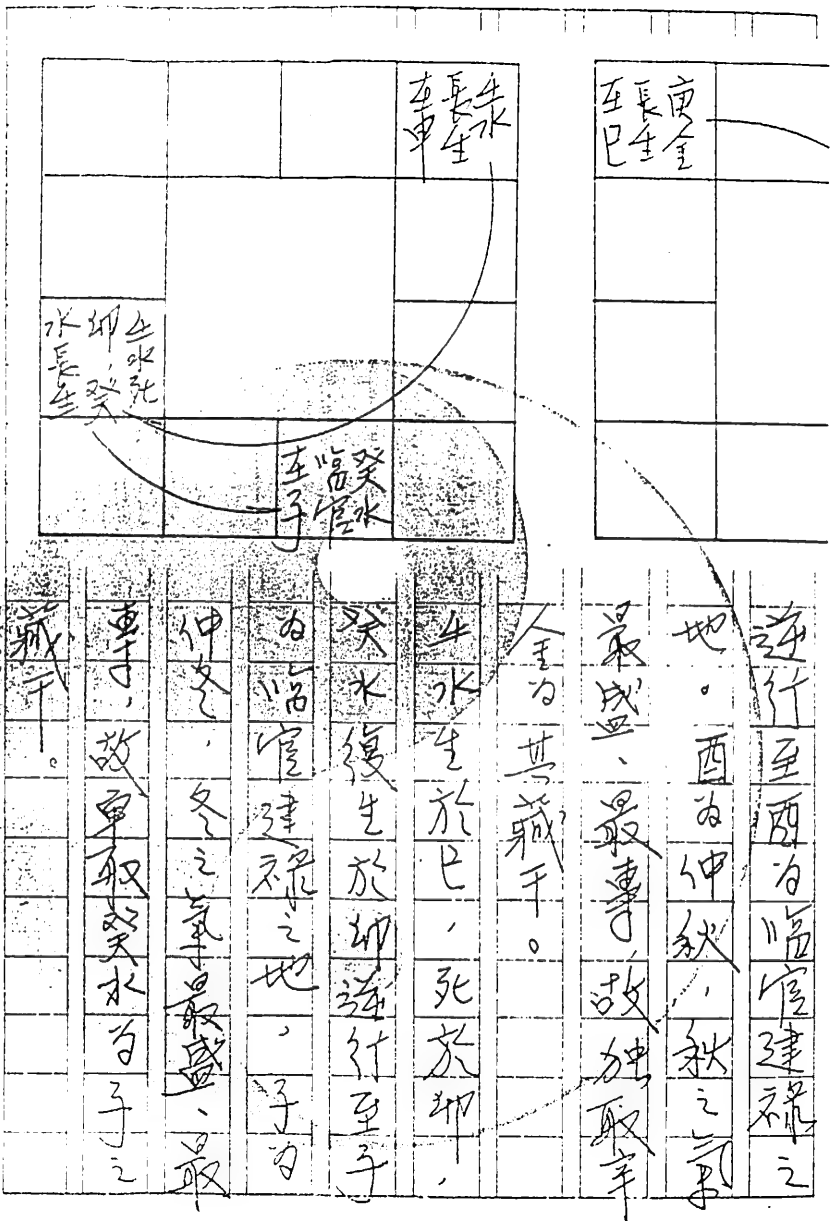 庚金
長生
在巳
壬水
長生
在申
壬水死
卯，癸
水長生
癸水
臨官
在子
逆行至酉为临官建禄之
地。酉为仲秋，秋之氣
最盛、最專，故独取辛
金为其藏干。
壬水生於巳，死於卯，
癸水復生於卯逆行至子
为临官建禄之地，子为
仲冬，冬之氣最盛、最
專，故單取癸水为子之
藏干。